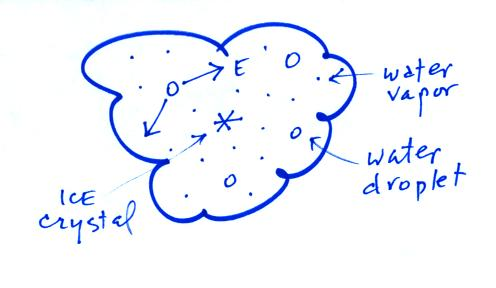 E
water
vapor
water
droplet
ICE
crystal